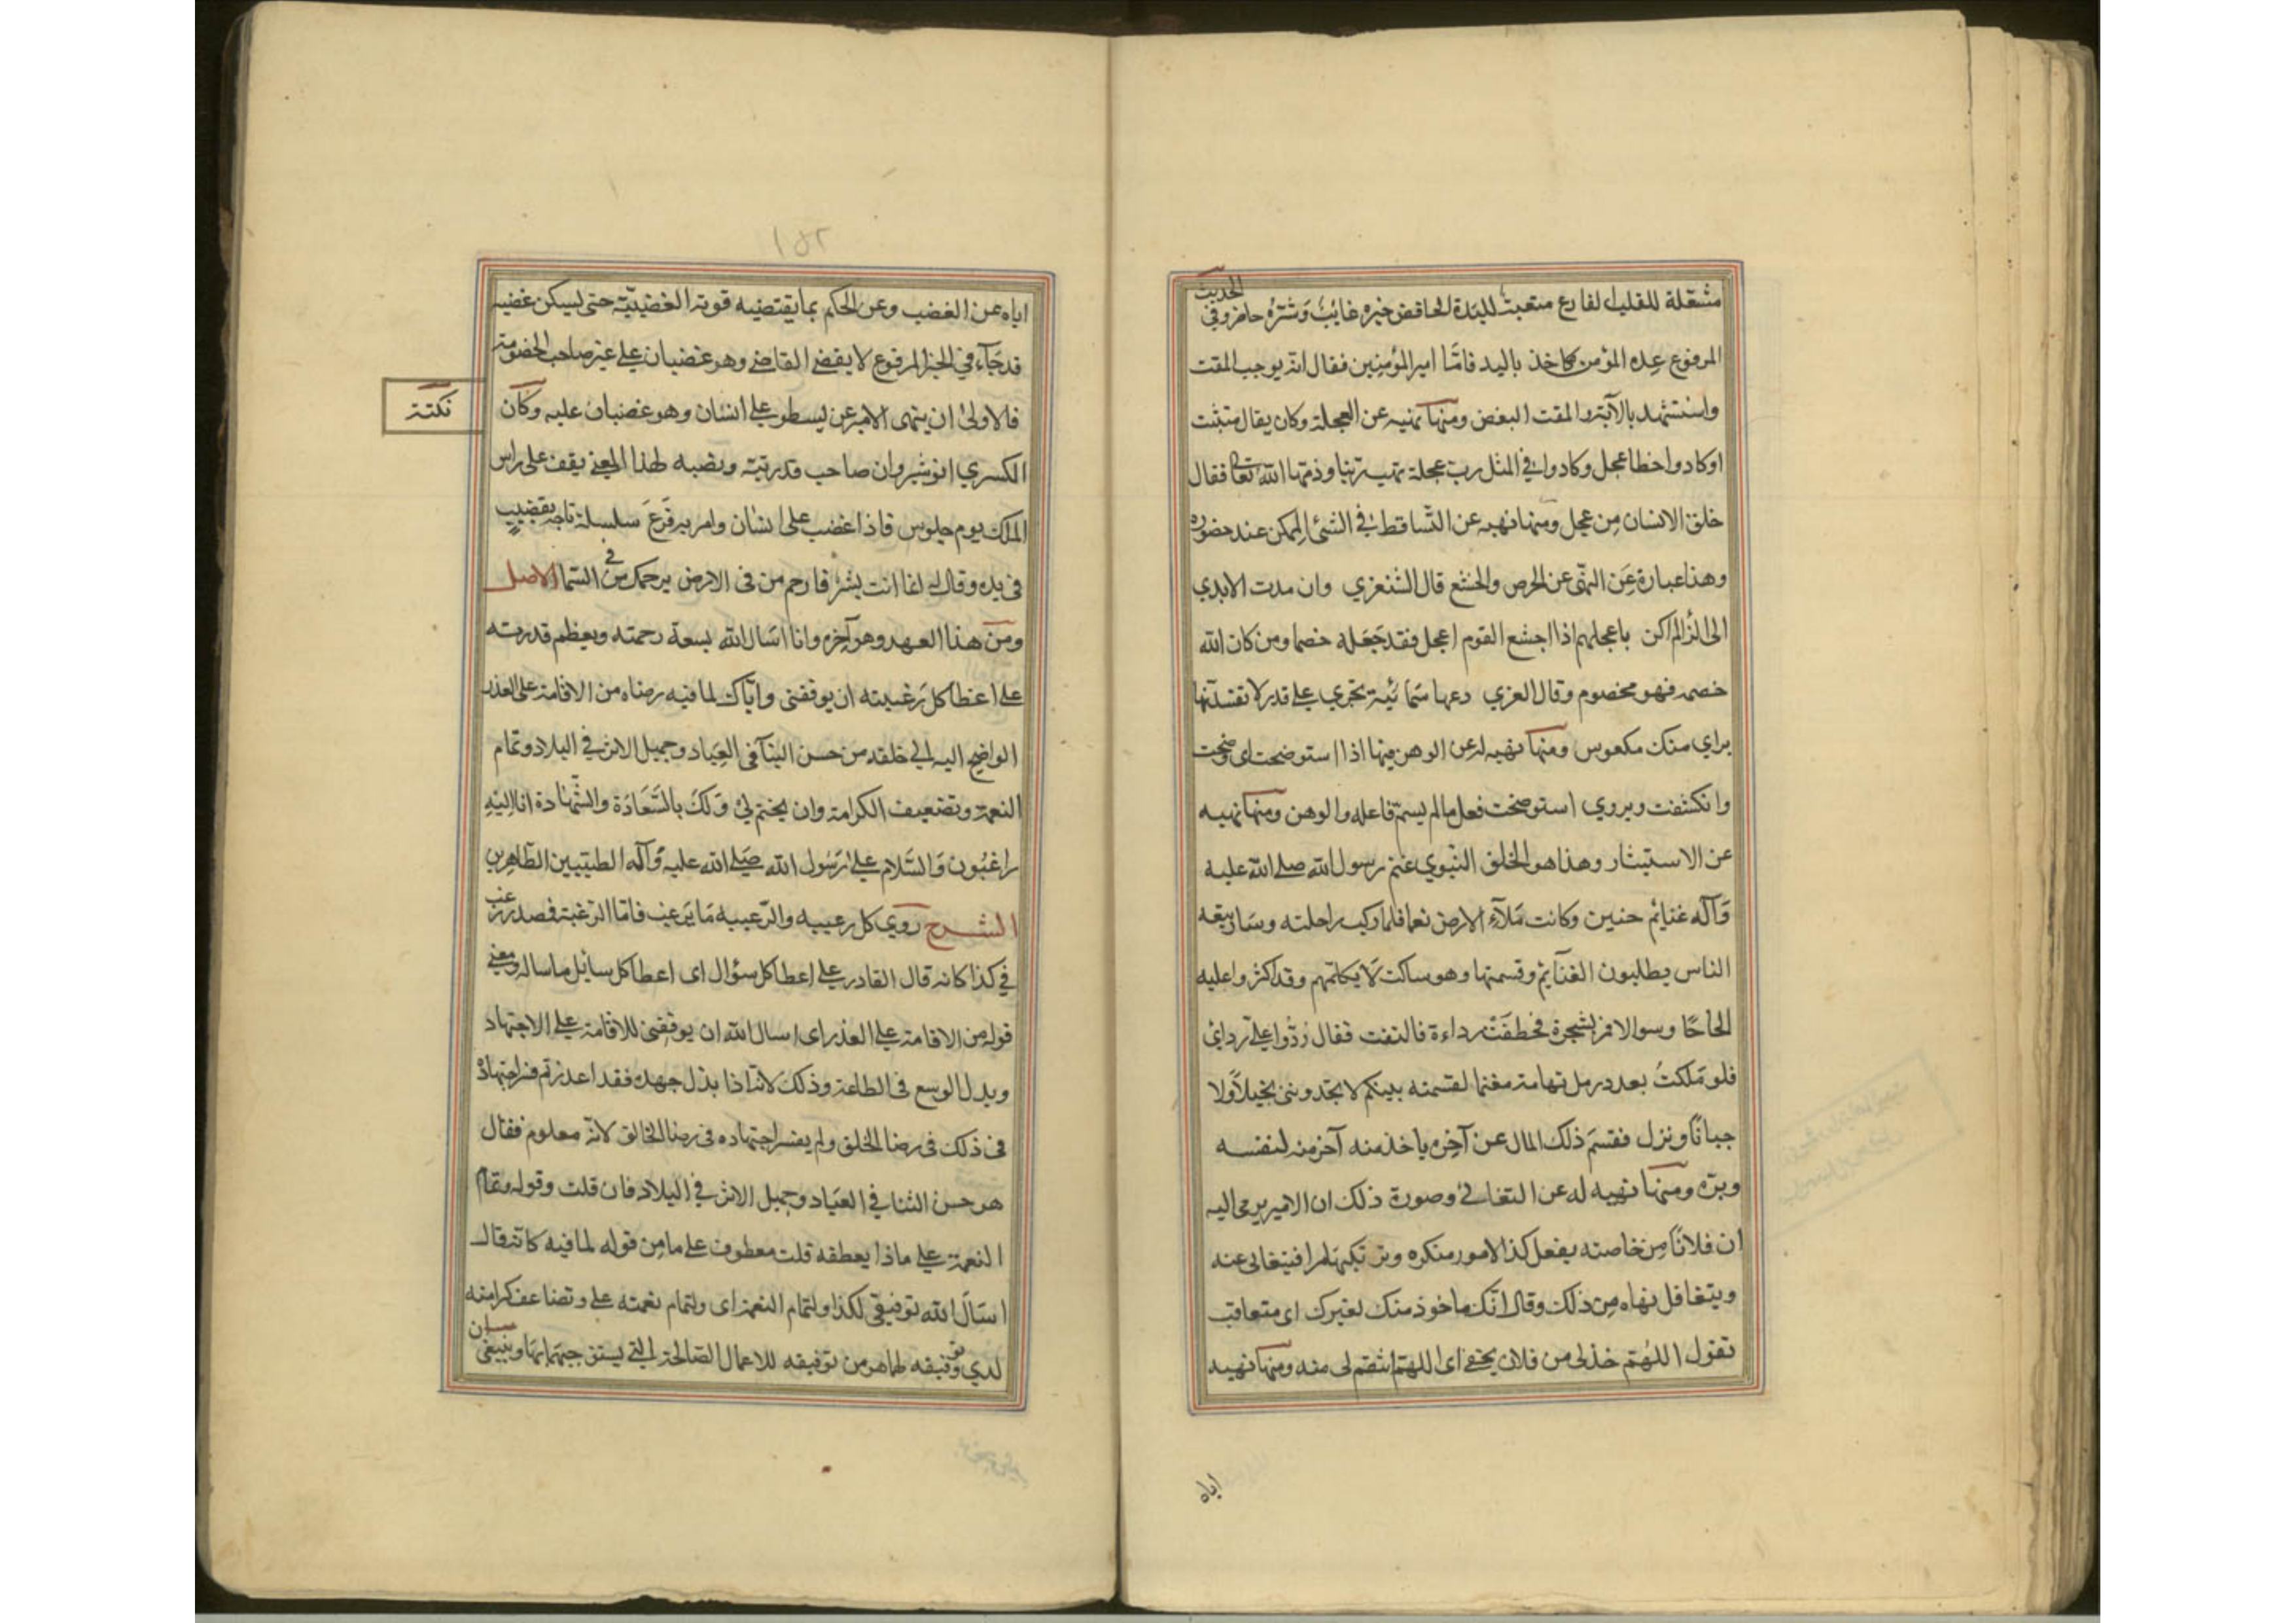 مشغلة للقلب الفارع متعبة للبدة الحاقض خيره غايب وشتره حاضر وفي الحديث
المرفوع عده المؤمن كاخذ باليد فاما امير المؤمنين فقال انه يوجب المقت
واستشهد بالآية والمقت البغض ومنها نهيه عن العجلة وكان يقال متبثت
اوكادوا خطا عجل وكادوا في المثل رب عجلة تهب ريثا وذمها الله تعا فقال
خلق الانسان من عجل ومنها نهيه عن التساقط في الشئ الممكن عند حضوره
وهذا عبارة عن النهى عن الحرص والجشع قال الشنغري وان مدت الايدي
الى الزاد لم اكن باعجلهم اذا اجشع القوم اعجل فقد جعله خصما ومن كان الله
خصمه فهو مخصوم وقال العزي دعها سمائية تجري على قدر لا تفسدنها
براي منك مكعوس ومنها نهيه له عن الوهن فيها اذا استوضحت اى وضحت
وانكشفت ويروي استوضحت فعل ما لم يسم فاعله والوهن ومنها نهيه
عن الاستيثار وهذا هو الخلق النبوي غنم رسول الله صلى الله عليه
وآله غنايم حنين وكانت ملآء الارض نعما فلما ركب راحلته وسار تبعه
الناس يطلبون الغنايم وقسمتها وهو ساكت لا يكلمهم وقد اكثروا عليه
الحاحا وسوالا فمر بشجرة فخطفت رداءة فالتفت فقال ردوا علي ردائي
فلو ملكت بعدد رمل تهامة مغنما لقسمته بينكم لا تجدوننى بخيلا ولا
جبانا ونزل فقسم ذلك المال عن آخره ياخذ منه آخر منه لنفسه
وبرة ومنها نهيه له عن التغابي وصورة ذلك ان الامير يرمى اليه
ان فلانا من خاصته يفعل كذا الامور منكره ويرتكبها سرا فيتغابى عنه
ويتغافل نهاه من ذلك وقال انك ماخوذ منك لغيرك اى متعاقب
تقول اللهم خذلى من فلان بحقى اى اللهم انتقم لى منه ومنها نهيه
اباه
١٥٢
اباه عن الغضب وعن الحكم بما يقتضيه قوته الغضبية حتى يسكن غضبه
قد جآء في الخبر المرفوع لا يقضي القاضي وهو غضبان على غير صاحب الخصومة
فالاولى ان ينهى الامير عن يسطو على انسان وهو غضبان عليه وكان
نكتة
الكسري انوشيروان صاحب قد رتبه ونصبه لهذا المعنى يقف على راس
الملك يوم جلوس فاذا غضب على انسان وامر به قرع سلسلة تاجه بقضيب
في يده وقال له انما انت بشر فارحم من فى الارض يرحمك من في السما الاصل
ومن هذا العهد وهو آخره وانا اسال الله بسعة رحمته وبعظم قدرته
على اعطا كل رغبيته ان يوفقنى واياك لما فيه رضاه من الاقامة على العذر
الواضح اليه الى خلقه من حسن الثنآ فى العباد وجميل الاثر في البلاد وتمام
النعمة وتضعيف الكرامة وان يختم لي ولك بالسعادة والشهادة انا اليه
راغبون والسلام على رسول الله صلى الله عليه وآله الطيبين الطاهرين
الشرح روي كل رعيبه والرعيبه ما يرعب فاما الرغبة فصدر رغب
في كذا كانه قال القادر على اعطا كل سؤال اى اعطا كل سايل ما ساله ومعنى
قوله من الاقامة على العذر اى اسال الله ان يوفقنى للاقامة على الاجتهاد
وبدل الوسع فى الطاعة وذلك لانه اذا بذل جهده فقد اعذر ثم فسر اجتهاده
فى ذلك فى رضا الخلق ولم يفسر اجتهاده فى رضا الخالق لانه معلوم فقال
هو حسن الثنا في العباد وجميل الاثر في البلاد فان قلت وقوله وتمام
النعمة على ماذا يعطفه قلت معطوف على ما من قوله لما فيه كانه قال
اسال الله توفيقى لكذا ولتمام النعمة اى ولتمام نعمته على وتضاعف كرامته
لدي وتوفيقه لهما هو من توفيقه للاعمال الصالحة التي يستوجبهما بها وينبغى ان